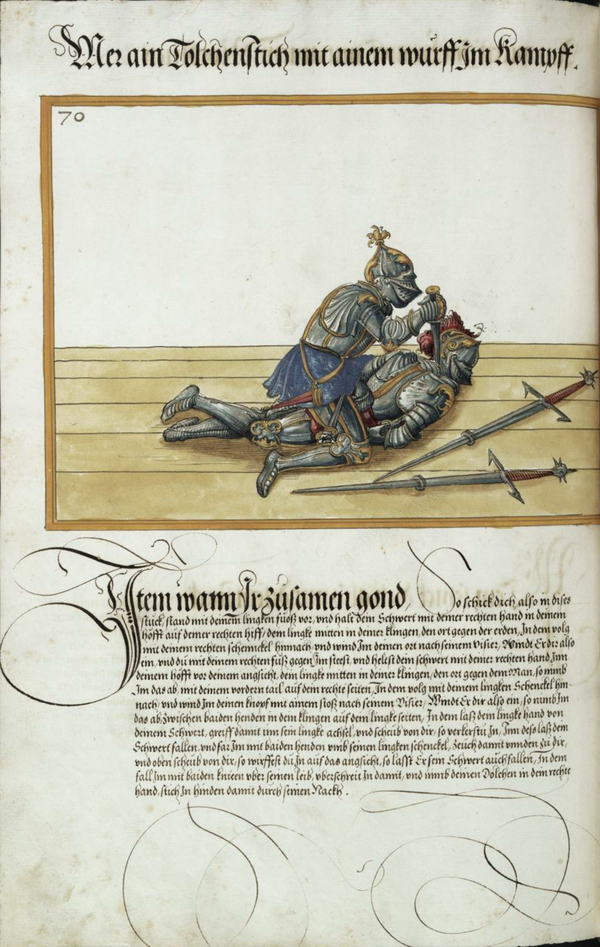 Mer ain Tolchenstich mit ainem wurff Jm Kampff.
70
Jtem wann Jr zusamen gond So schick dich also in dises
stuck stand mit deinem lingken fuoß vor, vnd halt dein Schwert mit deiner rechten hand in deinem
hofft auf deiner rechten hiff, dein lingke mitten in deiner klingen, den ort gegen der erden, Jn dem volg
mit deinem rechten schennckel hinnach vnd wind Im deinen ort nach seinem Visier, Windt Er dir also
ein, vnd du mit deinem rechten fuß gegen Jm steest, vnd heltst dein schwert mit deiner rechten hand Jnn
deinem hofft vor deinem angsicht, dein lingke mitten in deiner klingen, den ort gegen dem Man, so nimb
Im das ab, mit deinem vordern tail auf dein rechte seiten, Jn dem volg mit deinem lingken Schenckel hin¬
nach, vnd wind Im deinen knopf mit ainem stoß nach seinem Visier, Windt Er dir also ein, so nimb Im
das ab zwischen baiden henden in dein klingen auf dein lingke seiten, Jn dem laß dein lingke hand von
deinem Schwert, greiff damit vm sein lingke achsel, vnd scheub von dir, so verkerst in, Jnn des laß dein
Schwert fallen, vnd far Im mit baiden henden vmb seinen lingken schenckel, Zeuch damit vnnden zu dir,
vnd oben scheub von dir, so wurffest du In auf das angsicht, so lasst Er sein Schwert auch fallen, Jn dem
fall Im mit baiden knieen vber seinen leib, vberschreit In damit, vnd nimb deinen Dolchen in dein rechte
hand, stich In hinden damit durch seinen Nackh.